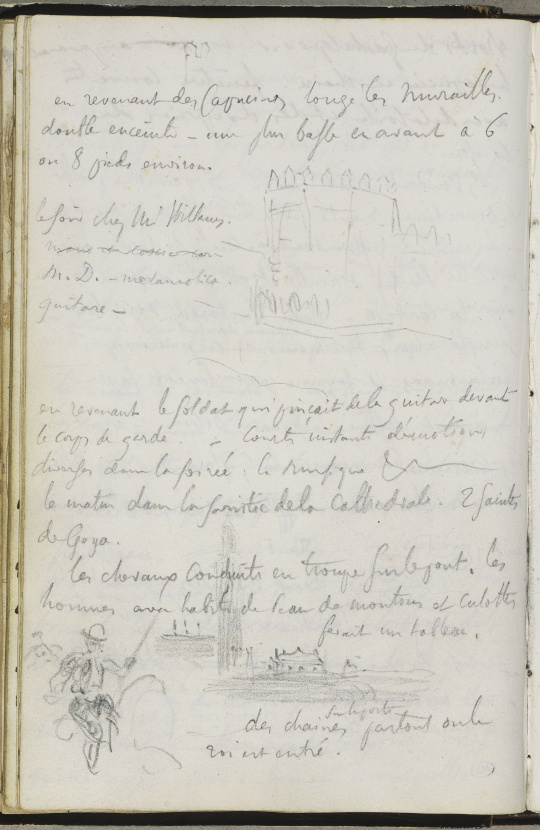 en revenant des Capucins longé les murailles.
double enceinte – une plus basse en avant à 6
ou 8 pieds environ.
le soir chez Mr Williams.
M. D. – melancolica.
guitare –
en revenant le soldat qui pinçait de la guitare devant
le corps de garde. – Courts instants d'émotions
diverses dans la soirée : la musique
le matin dans la sacristie de la Cathedrale. 2 Saintes
de Goya.
les chevaux conduits en troupe sur le pont. les
hommes avec habits de peau de moutons et culottes
ferait un tableau.
sur les portes
des chaines partout ou le
roi est entré.